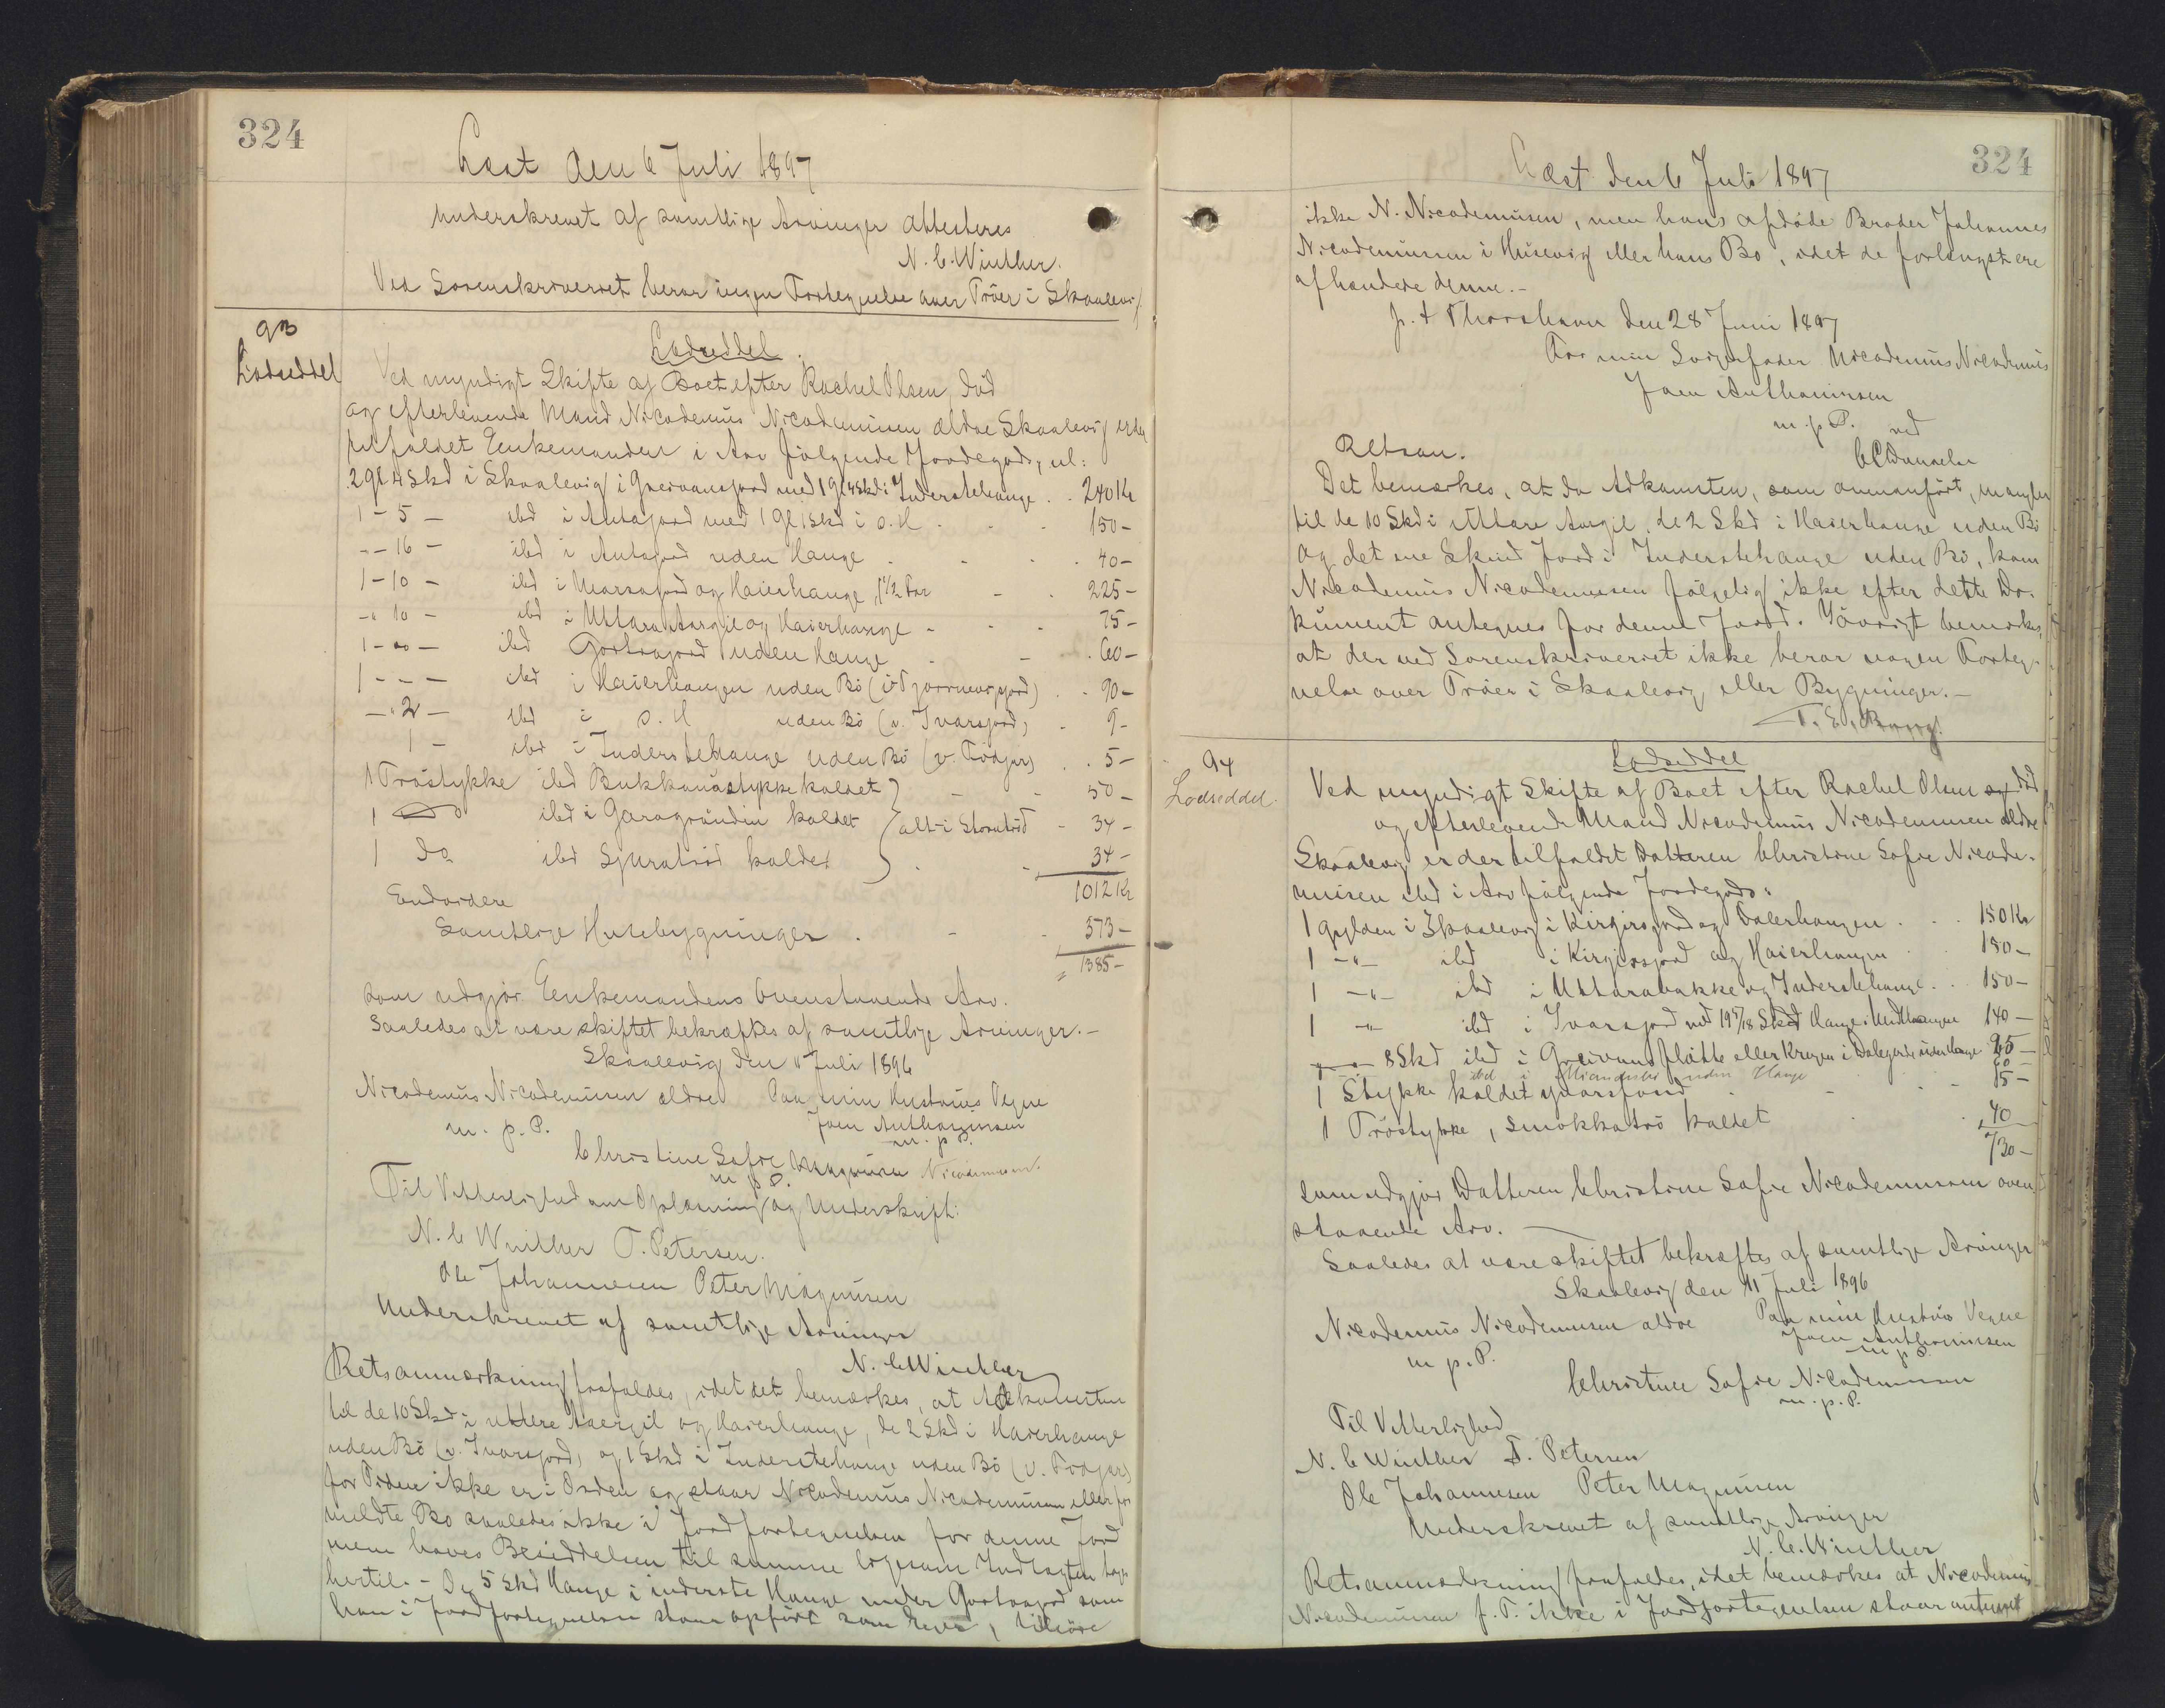 324
Læst den 6 Juli 1897
underskrevet af samtlige Arvinger attesteres
N. C. Winther.
Ved Sorenskriveriet beror ingen Fortegnelse over Tröer i Skaalevig
93
Lodseddel
Lodseddel.
Ved myndigt Skifte af Boet efter Rachel Olsen död
og efterlevende Mand Nicodemüs Nicodemüsen ældre Skaalevig er der
tilfaldet Enkemanden i Arv fölgende Jordegods, nl:
2 gl 4 Skd i Skaalevig i Greivansjord med 1 gl 4 Skd i Inderstehauge . . 240 Kr
1 - 5 - ibd i Antasjord med 1 Gl 1 Skd i d. H . . . 150 -
- - 16 - ibd i Antasjord uden Hauge . . . 40 -
1 - 10 - ibd i Marsajord og Haierhauge, 1 1/2 Far - . 225 -
- " 10 - ibd i Uttara Aargil og Haierhauge - . . 75 -
1 - " - ibd Gortrajord uden Hauge . - . 60 -
1 - - - ibd i Haierhaugen uden Bö (i Tjørnevigsjord) . . 90 -
- " 2 - ibd i d. H uden Bö (v. Ivarsjord) . 9 -
1 - ibd i Inderstehauge uden Bö (v. Tödjers) . . 5 -
1 Tröstykke ibd Bukkaüastykke kaldet - - 50 -
1 do ibd i Garagründin kaldet alt i Storatröd - 34 -
1 do ibd Sjuratröd kaldet . - 34 -
1012 Kr
Endvidere
Samtlige Husebygninger . - - 373 -
1385 -
som udgjör Enkemandens Ovenstaaende Arv.
Saaledes at være skiftet bekræftes af samtlige Arvinger. -
Skaalevig den 11 Juli 1896
Nicodemüs Nicodemüsen ældre Paa min Hustrüs Vegne
m. p. P. Joen Anthoniüsen
m. p. P.
Christine Sofie Magnüsen Nicodemüsen.
m. p. P.
Til Vitterlighed om Oplæsning og Underskrift:
N. C Winther T. Petersen.
Ole Johannesen Peter Magnüsen
Underskrevet af samtlige Arvinger
N. C Winther
Retsanmærkning forfaldes, idet det bemærkes, at Adkomsten
til de 10 Skd i uttere Aargil og Haierhauge, de 2 Skd i Haierhauge
uden Bö (v. Ivarsjord) og 1 Skd i Inderstehauge uden Bö (v. Tödjers)
for Tiden ikke er i Orden og staar Nicodemüs Nicodemüsen eller for
meldte Bo saaledes ikke i Jordfortegnelsen for denne Jord
men haves Besiddelsen til samme ligesom Indtægten
hertil. - De 5 Skd Hauge i inderste Hauge under Gortrajord som
han i Jordfortegnelsen staar opfört som Eier, tilhöre
324
Læst den 6 Juli 1897
ikke N. Nicodemüsen, men hans afdöde Broder Johannes
Nicodemüsen i Hüsevig eller hans Bo, idet de forlængst ere
afhændede denne. -
p. t Thorshavn den 28 Juni 1897
For min Svigerfader Nicodemüs Nicodemüs
Joen Anthoniüsen
m. p. P. ved
C C Danneler
Retsan.
Det bemærkes, at da Adkomsten, som ovenanfört, mangler
til de 10 Skd i Uttare Aargil, de 2 Skd i Haierhauge uden Bö
og det ene Skind Jord i Inderstehauge uden Bö, kan
Nicodemüs Nicodemüsen fölgelig ikke efter dette Do-
küment antegnes for denne Jord. Iövrigt bemærkes,
at der ved Sorenskriveriet ikke beror nogen Forteg-
nelse over Tröer i Skaalevig eller Bygninger. -
T. E. Bang.
94
Lodseddel.
Lodseddel
Ved myndigt Skifte af Boet efter Rachel Olsen död
og efterlevende Mand Nicodemüs Nicodemüsen ældre
Skaalevig er der tilfaldet Datteren Christine Sofie Nicode-
müsen ibd i Arv fölgende Jordegods:
1 Gylden i Skaalevig i Kirgirsjord og Dalerhaugen . . . 150 Kr
1 - " - ibd i Kirgirsjord og Haierhaugen 150 -
1 - " - ibd i Uttarabakke og Inderstehauge . . 150 -
1 " ibd i Ivarsjord med 19 7/18 Skd Hauge i Midthaugen 140 -
- " - 8 Skd ibd i Greivans flötte eller Krogen i Dalegerde uden Hauge 25 -
ibd i uden Hauge 60 -
1 Stykke kaldet Ivarsjord . - - - 15 -
1 Tröstykke, Smokkatrö kaldet . . 40
730 -
som udgjör Datteren Christine Sofie Nicodemüsens oven
staaende Arv. -
Saaledes at være skiftet bekræftes af samtlige Arvinger
Skaalevig den 11 Juli 1896
Nicodemüs Nicodemüsen ældre Paa min Hustrüs Vegne
m. p. P. Joen Anthoniüsen
m. p. P.
Christine Sofie Nicodemüsen
m. p. P.
Til Vitterlighed
N. C Winther T. Petersen
Ole Johannesen Peter Magnüsen
Underskrevet af samtlige Arvinger
N. C. Winther
Retsanmærkning forfaldes, idet bemærkes at Nicodemüs
Nicodemüsen f. T. ikke i Jordfortegnelsen staar antegnet